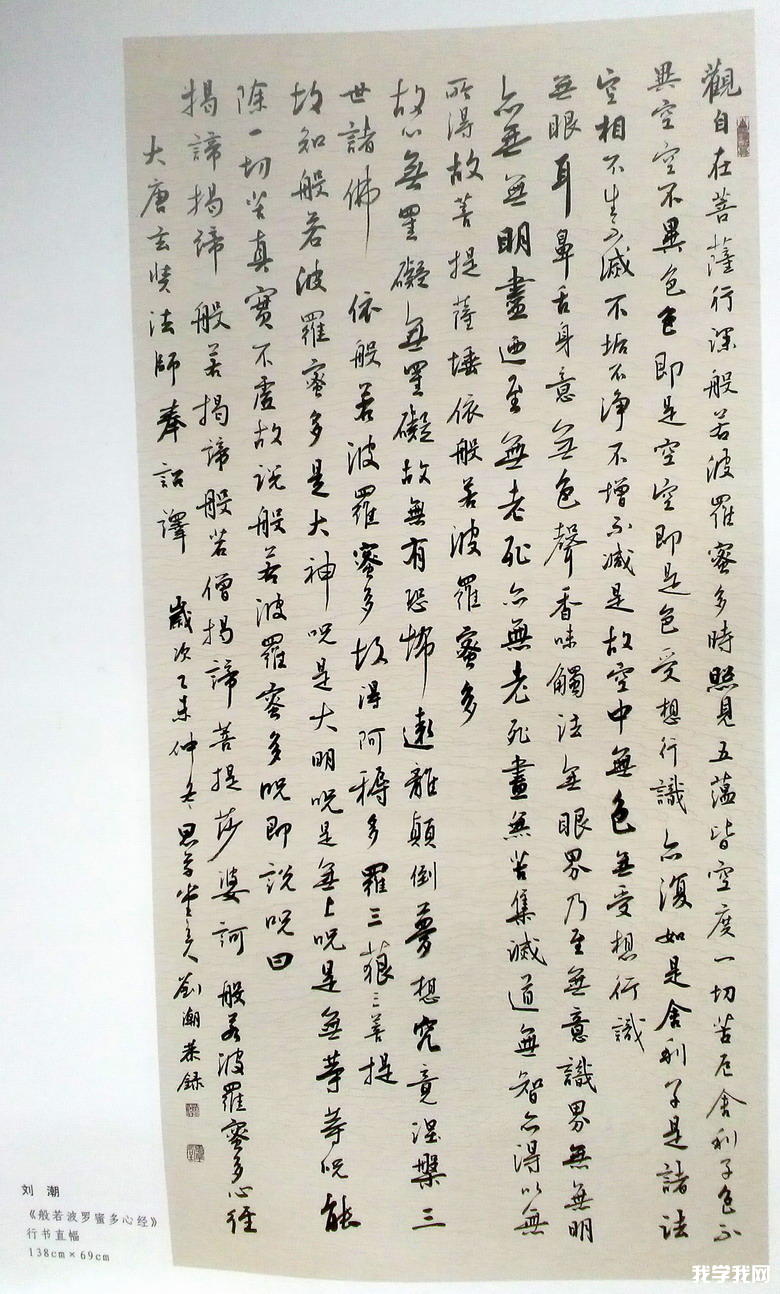 觀自在菩薩行深般若波羅蜜多時照見五蘊皆空度一切苦厄舍利子色不
異空空不異色色即是空空即是色受想行識亦復如是舍利子是諸法
空相不生不滅不垢不淨不增不減是故空中無色無受想行識
無眼耳鼻舌身意無色聲香味觸法無眼界乃至無意識界無無明
亦無無明盡迺至無老死亦無老死盡無苦集滅道無智亦得以無
所得故菩提薩埵依般若波羅蜜多
故心無罣礙無罣礙故無有恐怖遠離顛倒夢想究竟涅槃三
世諸佛 依般若波羅蜜多故得阿耨多羅三藐三菩提
故知般若波羅蜜多是大神呪是大明呪是無上呪是無等等呪能
除一切苦真實不虛故說般若波羅蜜多呪即說呪曰
揭諦揭諦般若揭諦般若僧揭諦菩提莎婆訶 般若波羅蜜多心經
大唐玄奘法師奉詔譯 歲次乙未仲冬 劉潮恭錄
刘 潮
《般若波罗蜜多心经》
行书直幅
138cm×69cm
我学我网